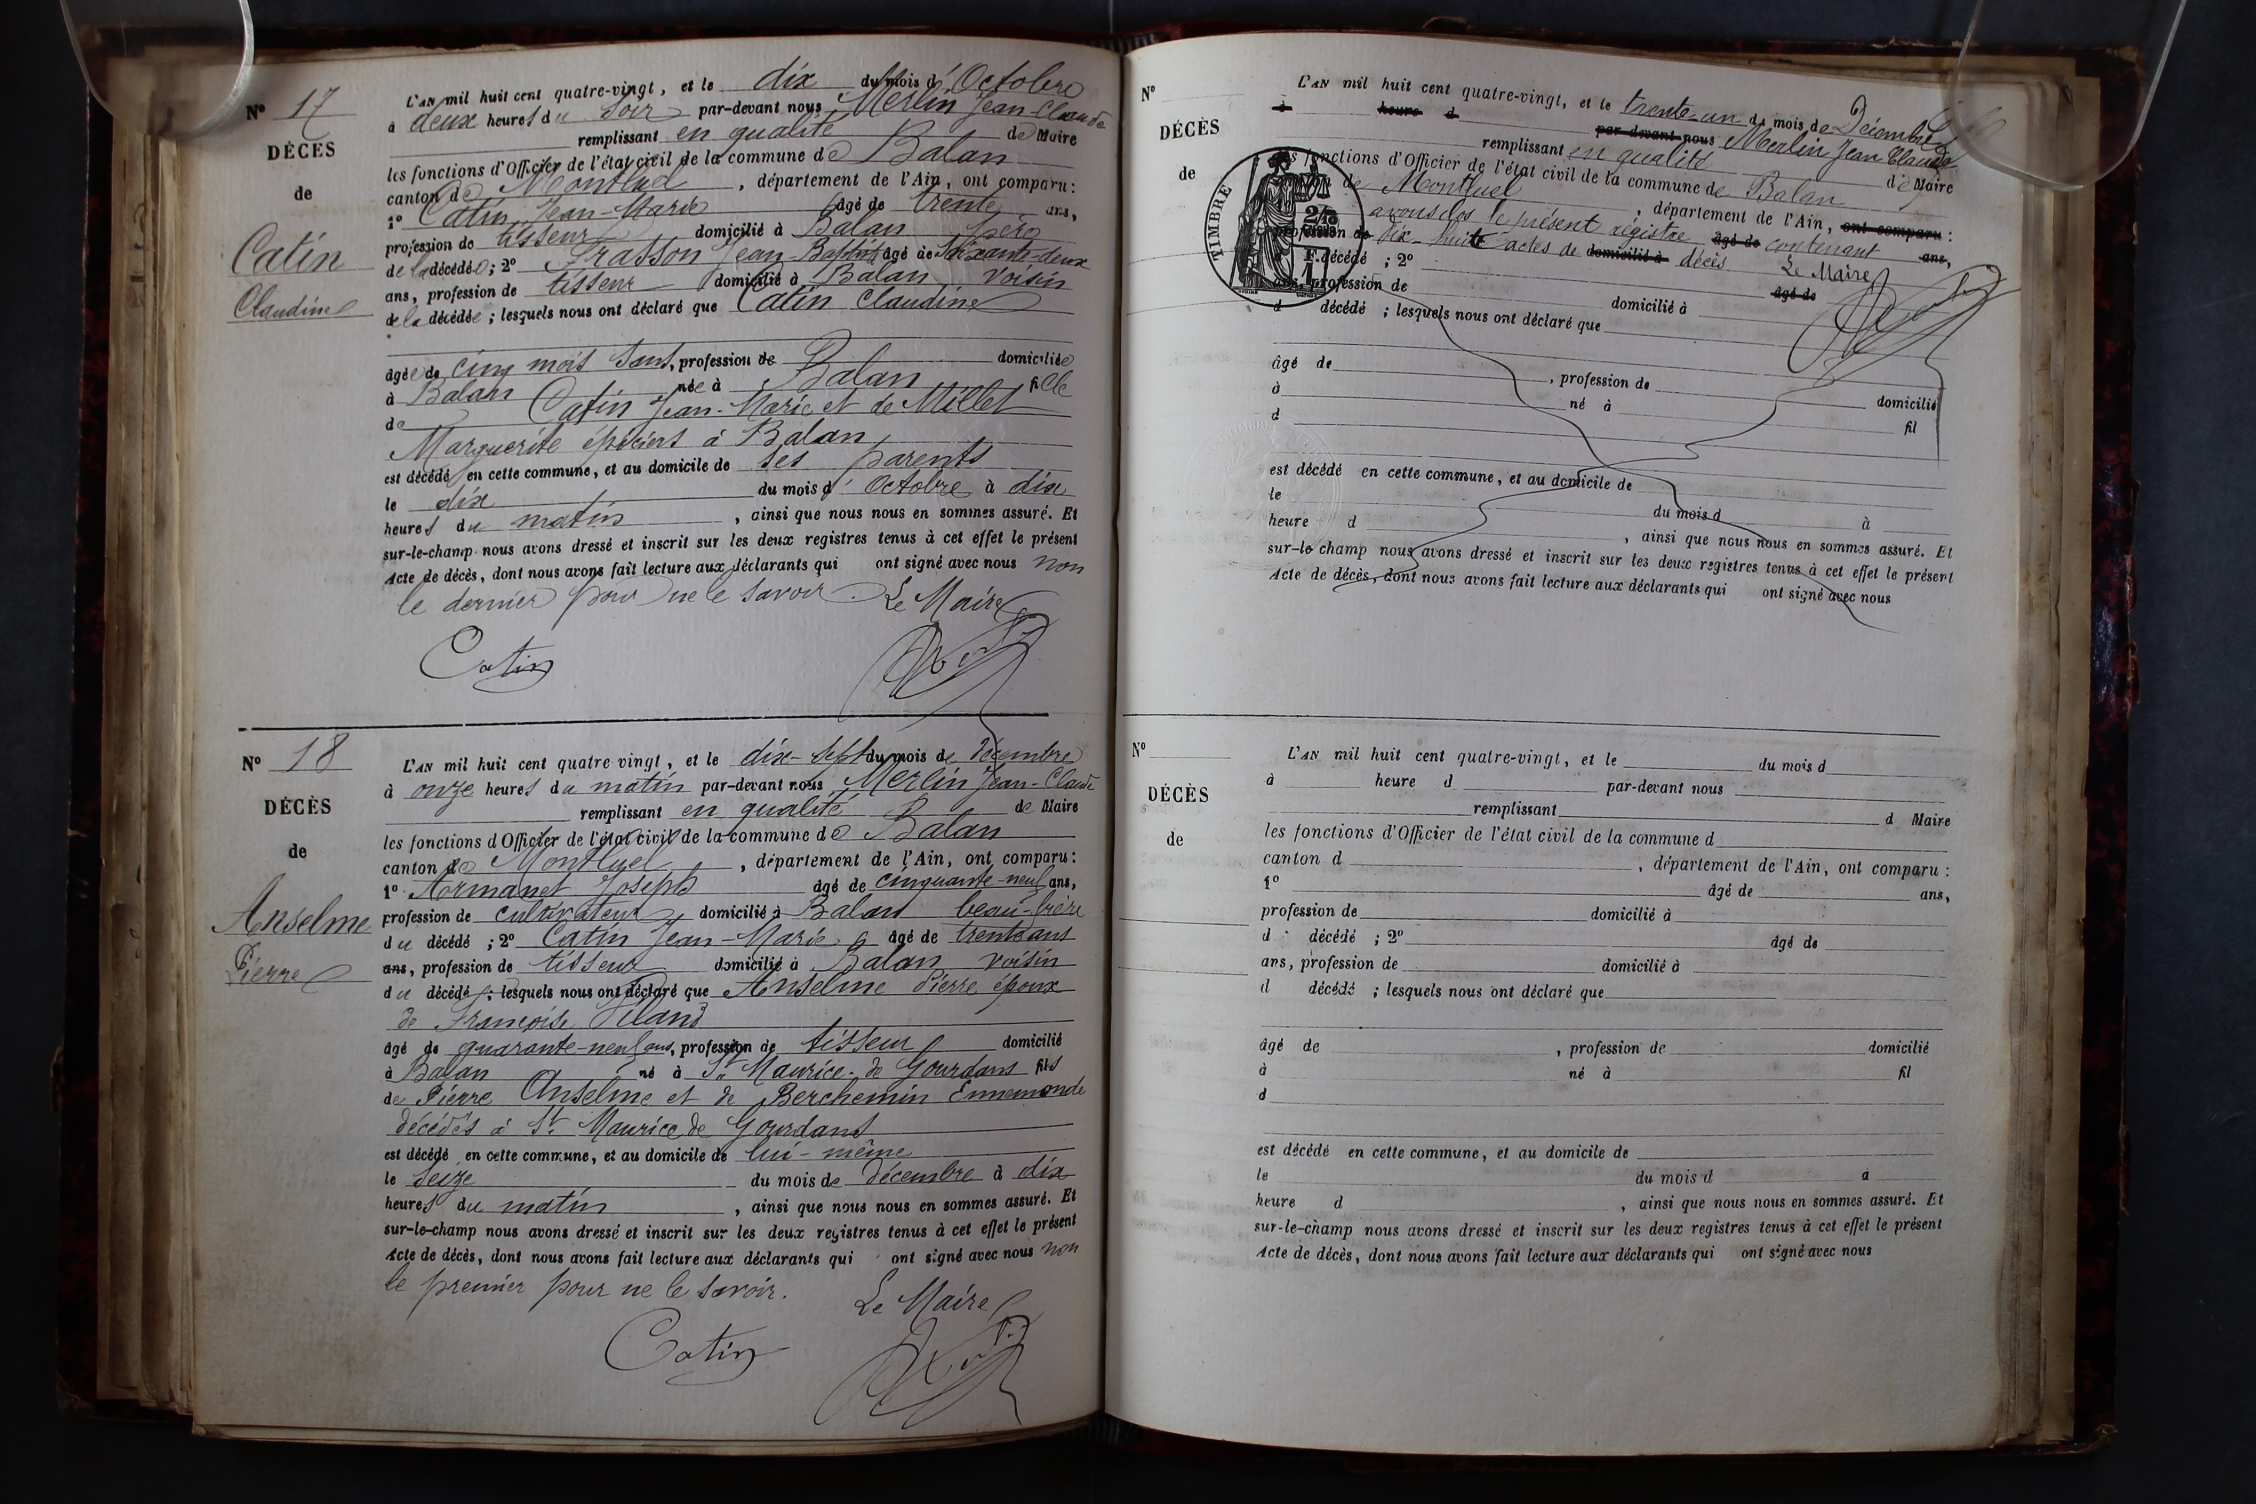 N° 17
DÉCÈS
de
Catin
Claudine
L'AN mil huit cent quatre-vingt, et le dix du mois d'Octobre
à deux heures du soir par-devant nous Merlin Jean-Claude
remplissant en qualité de Maire
les fonctions d'Officier de l'état civil de la commune de Balan
canton de Montluel, département de l'Ain, ont comparu :
1° Catin Jean-Marie âgé de trente ans,
profession de tisseur domicilié à Balan père
de la décédée ; 2° Frasson Jean-Baptiste âgé de Soixante-deux
ans, profession de tisseur domicilié à Balan voisin
de la décédée ; lesquels nous ont déclaré que Catin Claudine
âgée de cinq mois sans, profession de domiciliée
à Balan née à Balan fille
de Catin Jean-Marie et de Millet
Marguerite épiciers à Balan
est décédé en cette commune, et au domicile de ses parents
le dix du mois d'Octobre à dix
heures du matin, ainsi que nous nous en sommes assuré. Et
sur-le-champ nous avons dressé et inscrit sur les deux registres tenus à cet effet le présent
Acte de décès, dont nous avons fait lecture aux déclarants qui ont signé avec nous non
le dernier pour ne le savoir. Le Maire
Catin
N° 18
DÉCÈS
de
Anselme
Pierre
L'AN mil huit cent quatre vingt, et le dix-sept du mois de décembre
à onze heures du matin par-devant nous Merlin Jean-Claude
remplissant en qualité de Maire
les fonctions d'Officier de l'état civil de la commune de Balan
canton de Montluel, département de l'Ain, ont comparu :
1° Armanet Joseph âgé de cinquante-neuf ans,
profession de cultivateur domicilié à Balan beau-frère
du décédé ; 2° Catin Jean-Marie âgé de trente ans
ans, profession de tisseur domicilié à Balan voisin
du décédé ; lesquels nous ont déclaré que Anselme Pierre époux
de Françoise
âgé de quarante-neuf ans, profession de tisseur domicilié
à Balan né à St Maurice-de Gourdans fils
de Pierre Anselme et de Berchemin Ennemonde
décédés à St Maurice de Gourdans
est décédé en cette commune, et au domicile de lui-même
le seize du mois de décembre à dix
heures du matin, ainsi que nous nous en sommes assuré. Et
sur-le-champ nous avons dressé et inscrit sur les deux registres tenus à cet effet le présent
Acte de décès, dont nous avons fait lecture aux déclarants qui ont signé avec nous non
le premier pour ne le savoir. Le Maire
Catin
N°
DÉCÈS
de
TIMBRE
L'AN mil huit cent quatre-vingt, et le trente-un du mois de Décembre
à heure d par-devant nous Merlin Jean Claude
remplissant en qualité de Maire
les fonctions d'Officier de l'état civil de la commune de Balan
canton de Montluel, département de l'Ain, ont comparu :
avons clos le présent registre âgé de contenant ans,
profession de dix-huit actes de domicilié à décès Le Maire
décédé ; 2° âgé de
ans, profession de domicilié à
d décédé ; lesquels nous ont déclaré que
âgé de , profession de domicilié
à né à fil
d
est décédé en cette commune, et au domicile de
le du mois d à
heure d , ainsi que nous nous en sommes assuré. Et
sur-le-champ nous avons dressé et inscrit sur les deux registres tenus à cet effet le présent
Acte de décès, dont nous avons fait lecture aux déclarants qui ont signé avec nous
N°
DÉCÈS
de
L'AN mil huit cent quatre-vingt, et le du mois d
à heure d par-devant nous
remplissant d Maire
les fonctions d'Officier de l'état civil de la commune d
canton d , département de l'Ain, ont comparu :
1° âgé de ans,
profession de domicilié à
d décédé ; 2° âgé de
ans, profession de domicilié à
d décédé ; lesquels nous ont déclaré que
âgé de , profession de domicilié
à né à fil
d
est décédé en cette commune, et au domicile de
le du mois d à
heure d , ainsi que nous nous en sommes assuré. Et
sur-le-champ nous avons dressé et inscrit sur les deux registres tenus à cet effet le présent
Acte de décès, dont nous avons fait lecture aux déclarants qui ont signé avec nous